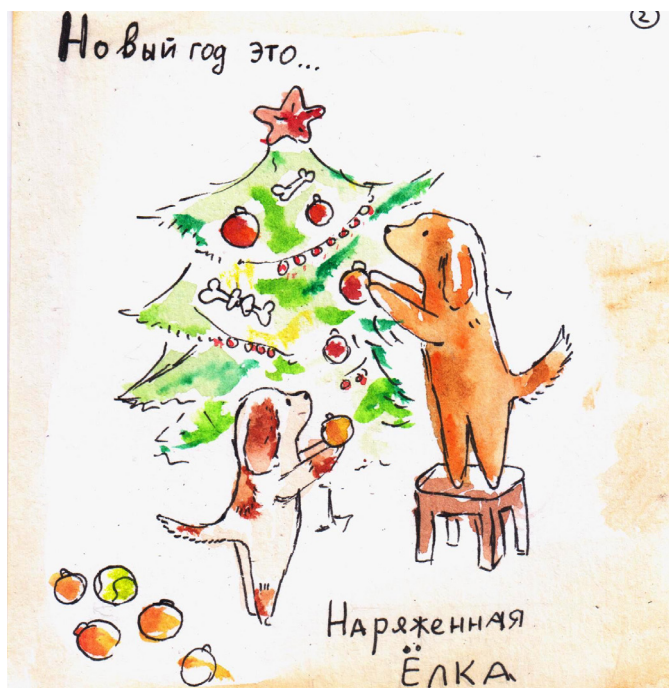 2
Новый год это...
Наряженная
Ёлка